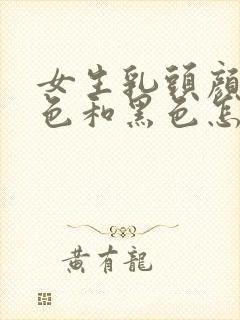 女生乳頭顔
色和黑色怎
黄有龍